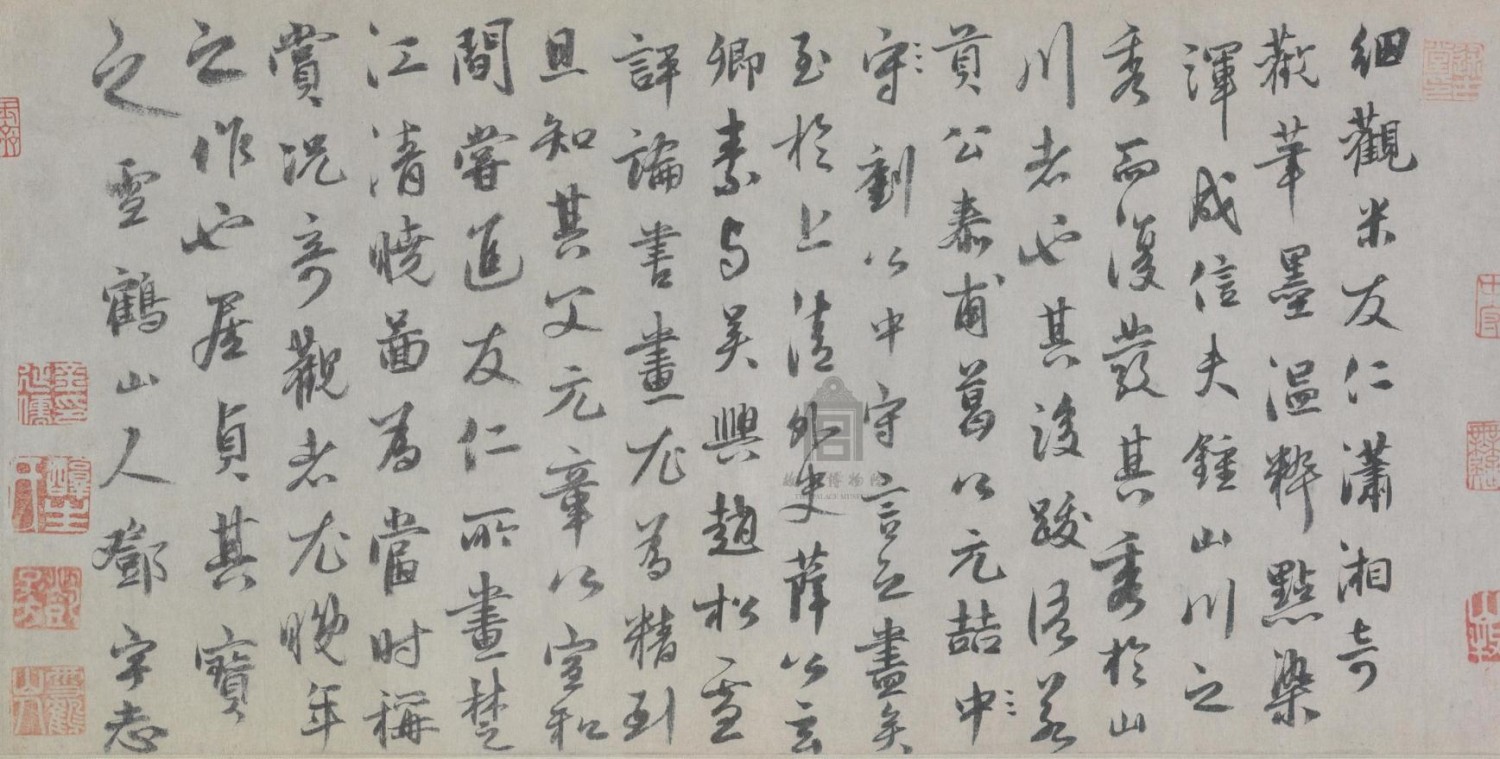 細觀米友仁瀟湘奇
觀筆墨溫粹點染
渾成信夫鍾山川之
秀而復發其秀於山
川者也其後跋語若
貢公泰甫葛公元喆中〻
守〻劉公中守言之盡矣
至於上清外史薛公玄
卿素與吳興趙松雪
評論書畫尤為精到
且知其父元章公宣和
間嘗進友仁所畫楚
江清曉圖為當時稱
賞況奇觀者尤晚年
之作也居貞其寶
之雪鶴山人鄧宇志
故宮博物院
THE PALACE MUSEUM